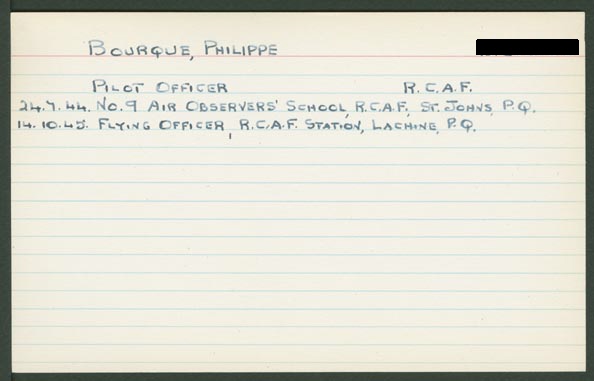 BOURQUE, PHILIPPE
PILOT OFFICER R.C.A.F.
24.7.44. No. 9 AIR OBSERVERS' SCHOOL, R.C.A.F., ST. JOHNS, P.Q.
14.10.45. FLYING OFFICER, R.C.A.F. STATION, LACHINE, P.Q.